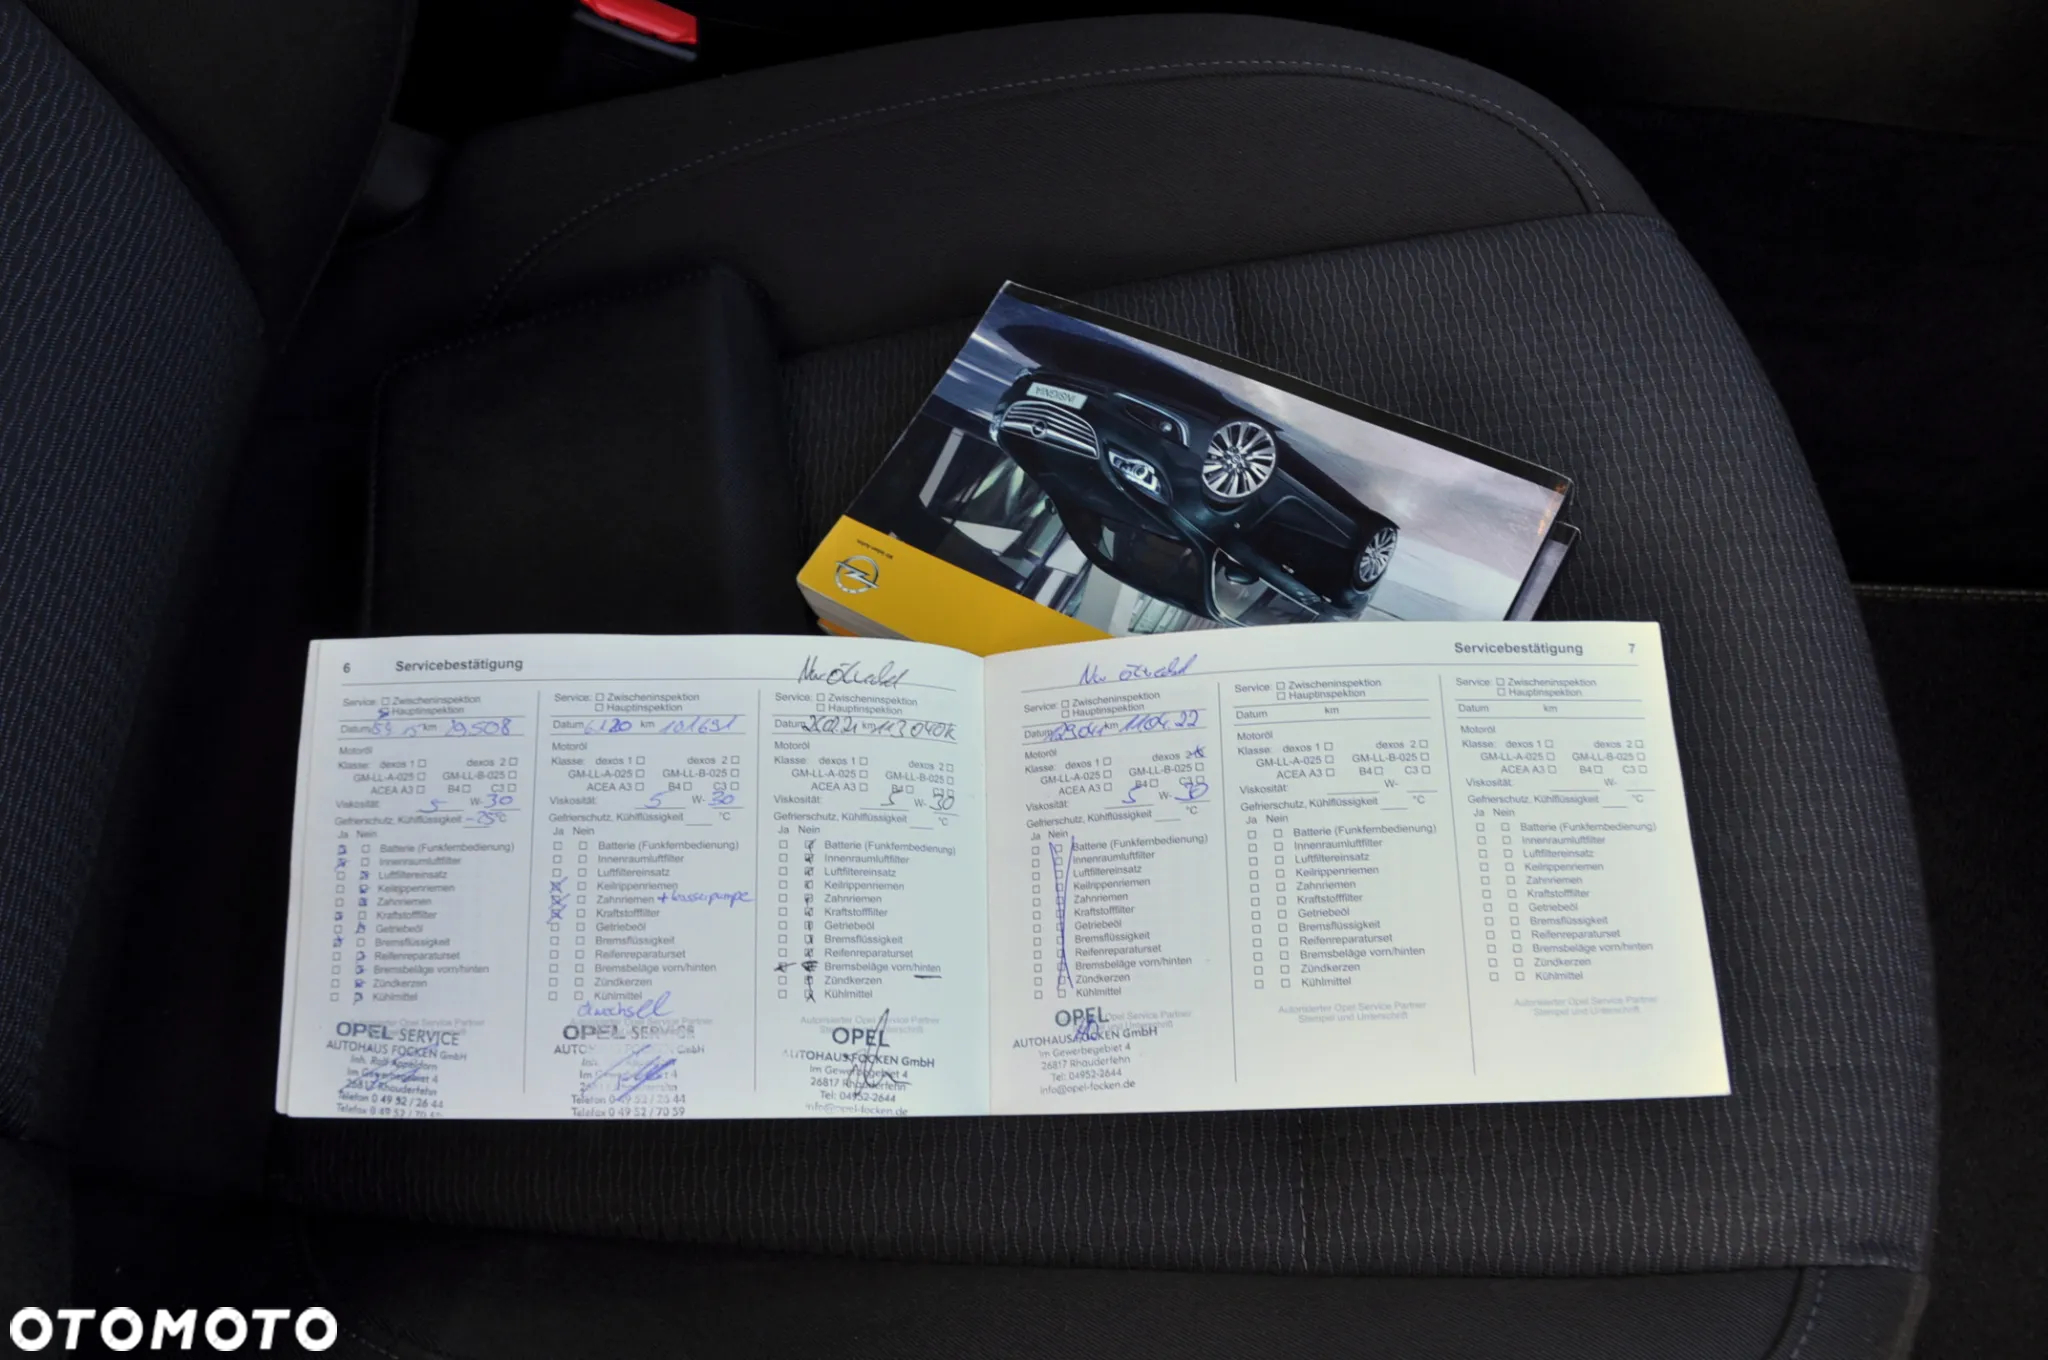 INSIGNIA
6 Servicebestätigung
Nur Ölwechsel
Service: Zwischeninspektion
Hauptinspektion
Datum km 29.508
Motoröl
Klasse: dexos 1 dexos 2
GM-LL-A-025 GM-LL-B-025
ACEA A3 B4 C3
Viskosität: 5 W- 30
Gefrierschutz, Kühlflüssigkeit -25 °C
Ja Nein
Batterie (Funkfernbedienung)
Innenraumluftfilter
Luftfiltereinsatz
Keilrippenriemen
Zahnriemen
Kraftstofffilter
Getriebeöl
Bremsflüssigkeit
Reifenreparaturset
Bremsbeläge vorn/hinten
Zündkerzen
Kühlmittel
Autorisierter Opel Service Partner
OPEL SERVICE
AUTOHAUS FOCKEN GmbH
Im Gewerbegebiet 4
26817 Rhauderfehn
Telefon 0 49 52 / 26 44
Telefax 0 49 52 / 70 59
Service: Zwischeninspektion
Hauptinspektion
Datum km 101691
Motoröl
Klasse: dexos 1 dexos 2
GM-LL-A-025 GM-LL-B-025
ACEA A3 B4 C3
Viskosität: 5 W- 30
Gefrierschutz, Kühlflüssigkeit °C
Ja Nein
Batterie (Funkfernbedienung)
Innenraumluftfilter
Luftfiltereinsatz
Keilrippenriemen
Zahnriemen + Wasserpumpe
Kraftstofffilter
Getriebeöl
Bremsflüssigkeit
Reifenreparaturset
Bremsbeläge vorn/hinten
Zündkerzen
Kühlmittel
Ölwechsel
OPEL SERVICE
Telefon 0 49 52 / 26 44
Telefax 0 49 52 / 70 59
Service: Zwischeninspektion
Hauptinspektion
Datum km 113 040k
Motoröl
Klasse: dexos 1 dexos 2
GM-LL-A-025 GM-LL-B-025
ACEA A3 B4 C3
Viskosität: 5 W- 30
Gefrierschutz, Kühlflüssigkeit °C
Ja Nein
Batterie (Funkfernbedienung)
Innenraumluftfilter
Luftfiltereinsatz
Keilrippenriemen
Zahnriemen
Kraftstofffilter
Getriebeöl
Bremsflüssigkeit
Reifenreparaturset
Bremsbeläge vorn/hinten
Zündkerzen
Kühlmittel
Autorisierter Opel Service Partner
Stempel und Unterschrift
OPEL
AUTOHAUS FOCKEN GmbH
Im Gewerbegebiet 4
26817 Rhauderfehn
Tel: 04952-2644
info@opel-focken.de
Servicebestätigung 7
Nur Ölwechsel
Service: Zwischeninspektion
Hauptinspektion
Datum km 11.04.22
Motoröl
Klasse: dexos 1 dexos 2
GM-LL-A-025 GM-LL-B-025
ACEA A3 B4 C3
Viskosität: 5 W- 30
Gefrierschutz, Kühlflüssigkeit °C
Ja Nein
Batterie (Funkfernbedienung)
Innenraumluftfilter
Luftfiltereinsatz
Keilrippenriemen
Zahnriemen
Kraftstofffilter
Getriebeöl
Bremsflüssigkeit
Reifenreparaturset
Bremsbeläge vorn/hinten
Zündkerzen
Kühlmittel
OPEL
AUTOHAUS FOCKEN GmbH
Im Gewerbegebiet 4
26817 Rhauderfehn
Tel: 04952-2644
info@opel-focken.de
Service: Zwischeninspektion
Hauptinspektion
Datum km
Motoröl
Klasse: dexos 1 dexos 2
GM-LL-A-025 GM-LL-B-025
ACEA A3 B4 C3
Viskosität: W-
Gefrierschutz, Kühlflüssigkeit °C
Ja Nein
Batterie (Funkfernbedienung)
Innenraumluftfilter
Luftfiltereinsatz
Keilrippenriemen
Zahnriemen
Kraftstofffilter
Getriebeöl
Bremsflüssigkeit
Reifenreparaturset
Bremsbeläge vorn/hinten
Zündkerzen
Kühlmittel
Autorisierter Opel Service Partner
Stempel und Unterschrift
Service: Zwischeninspektion
Hauptinspektion
Datum km
Motoröl
Klasse: dexos 1 dexos 2
GM-LL-A-025 GM-LL-B-025
ACEA A3 B4 C3
Viskosität: W-
Gefrierschutz, Kühlflüssigkeit °C
Ja Nein
Batterie (Funkfernbedienung)
Innenraumluftfilter
Luftfiltereinsatz
Keilrippenriemen
Zahnriemen
Kraftstofffilter
Getriebeöl
Bremsflüssigkeit
Reifenreparaturset
Bremsbeläge vorn/hinten
Zündkerzen
Kühlmittel
Autorisierter Opel Service Partner
Stempel und Unterschrift
OTOMOTO